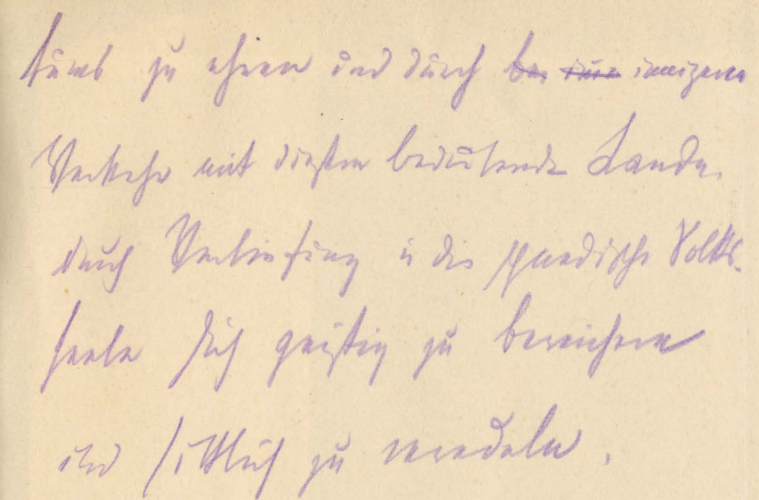 zu ehren und durch innigeren
Verkehr mit diesem bedeutenden Lande,
durch Vertiefung in die schwedische Volks-
seele sich geistig zu bereichern
und sittlich zu veredeln.